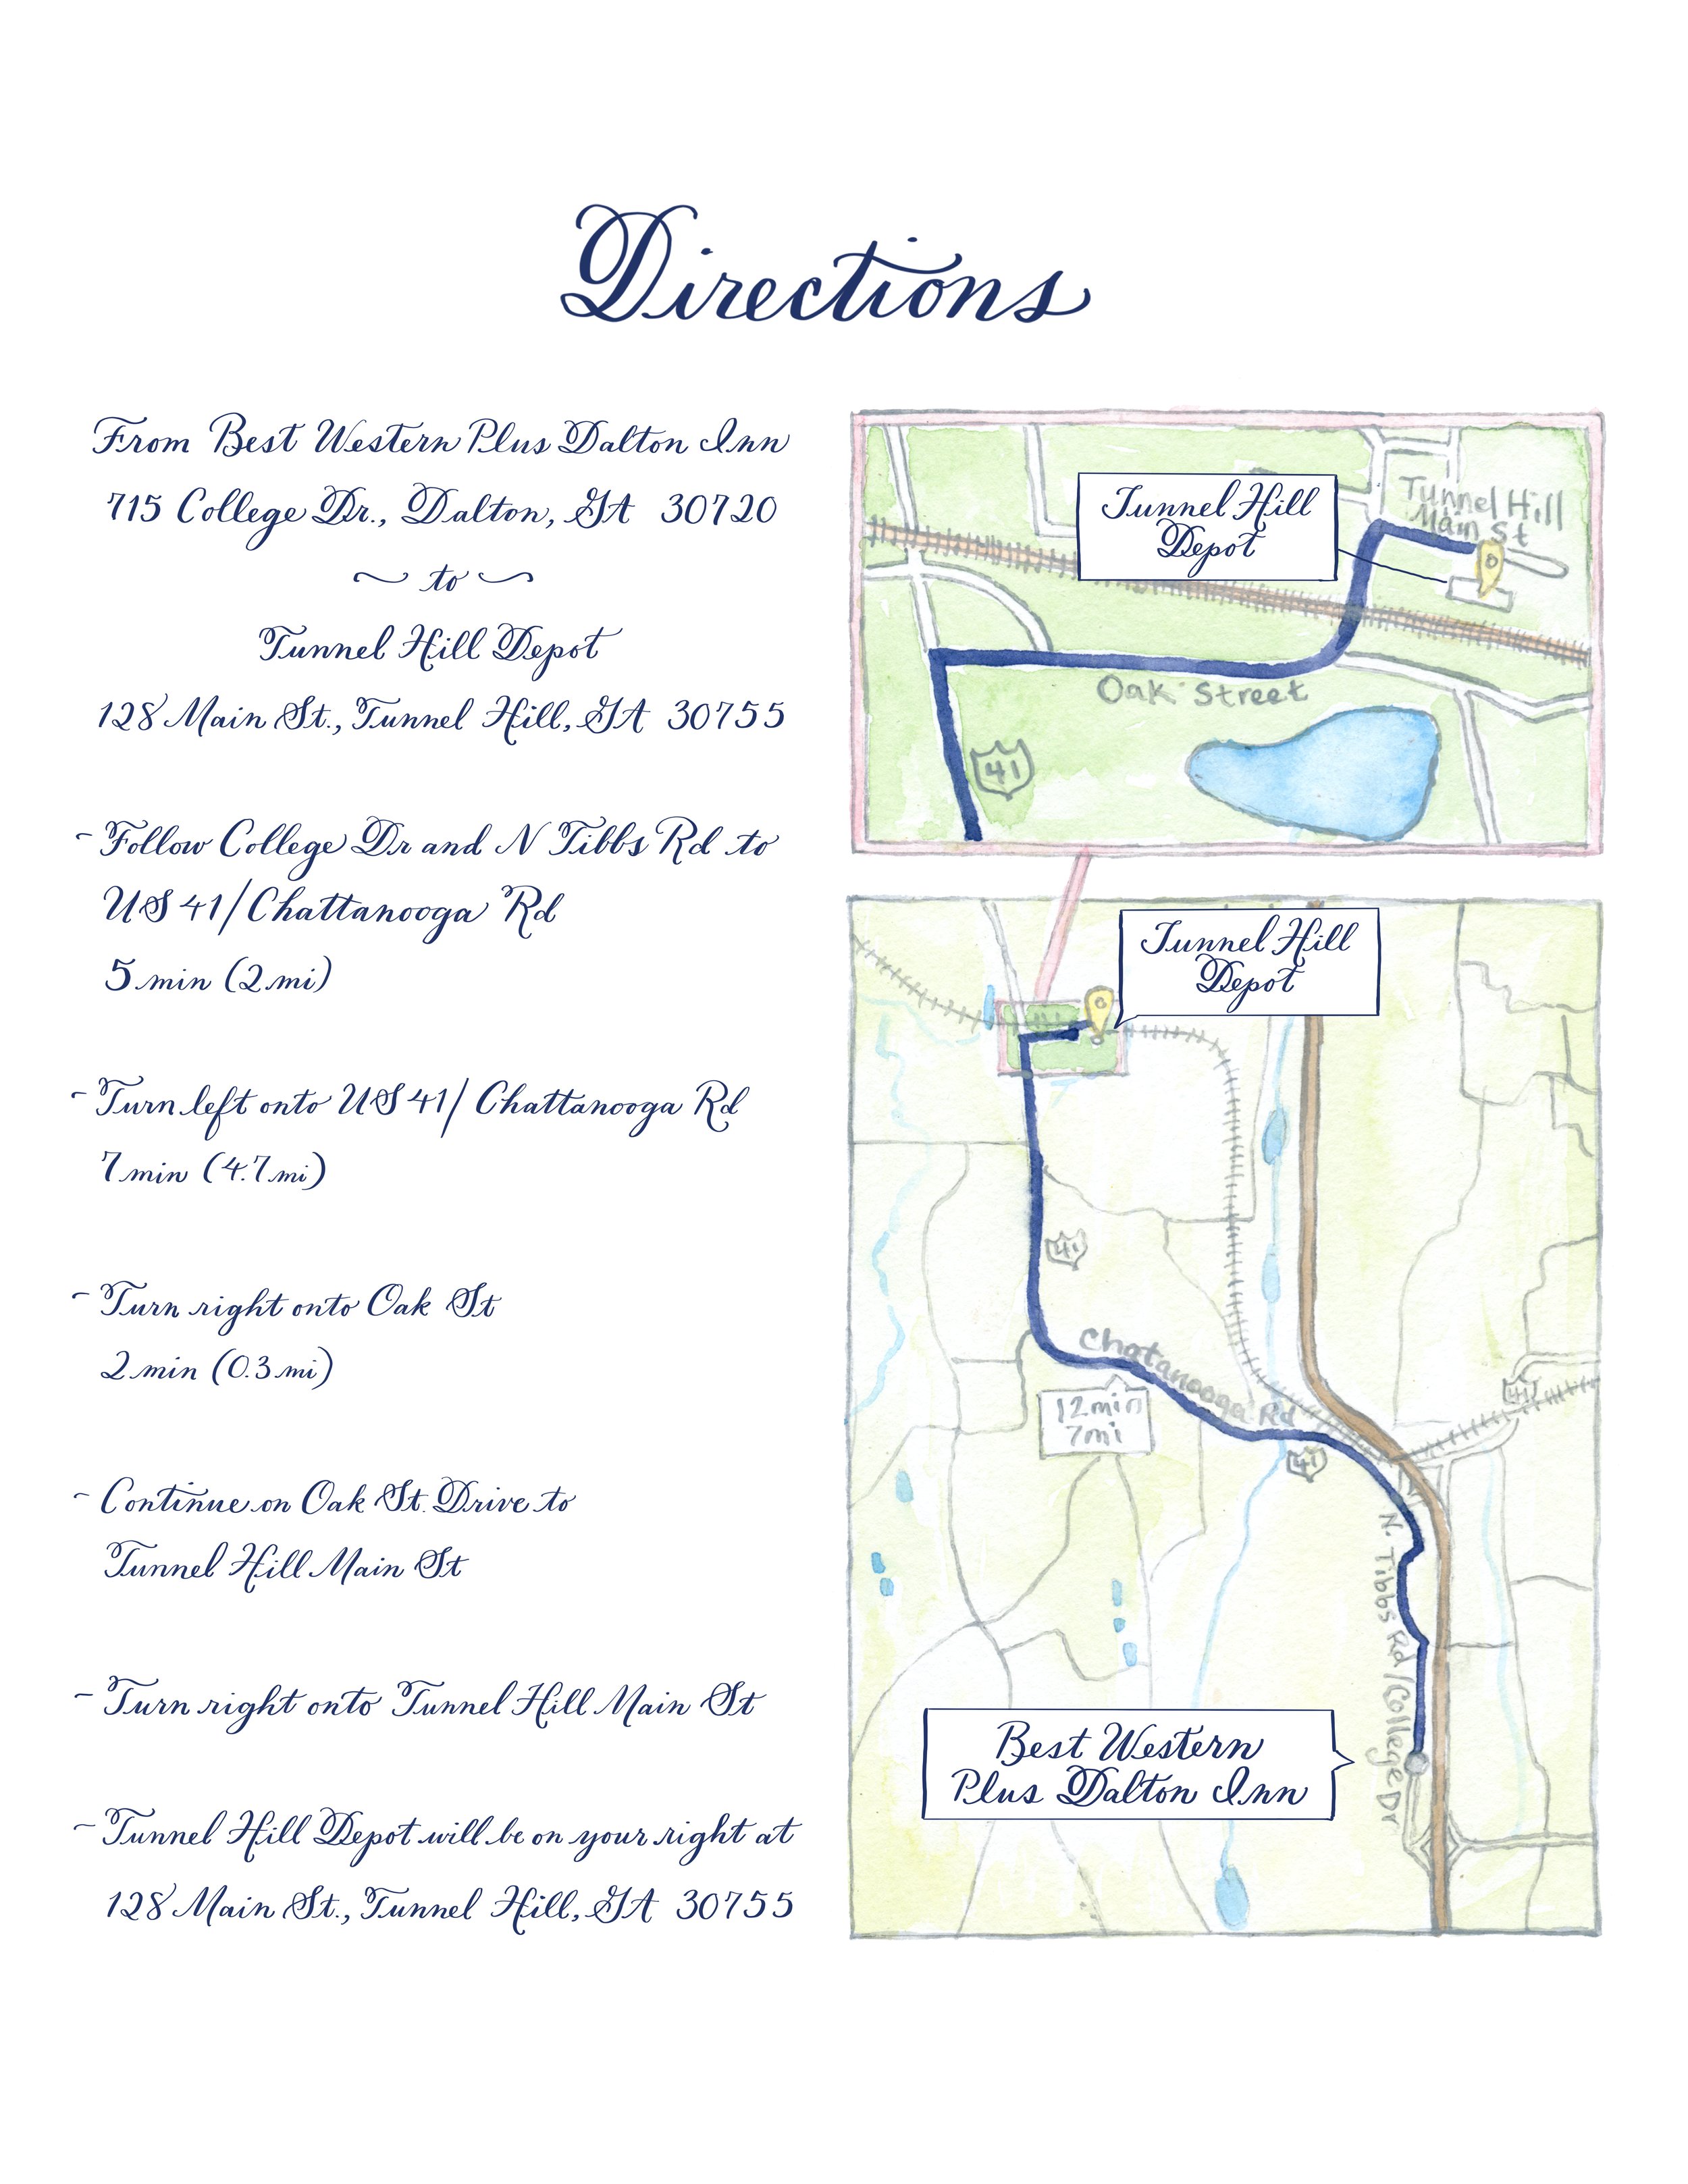 Directions
From Best Western Plus Dalton Inn
715 College Dr., Dalton, GA 30720
to
Tunnel Hill Depot
128 Main St., Tunnel Hill, GA 30755
- Follow College Dr and N Tibbs Rd to
US 41/Chattanooga Rd
5 min (2 mi)
- Turn left onto US 41/ Chattanooga Rd
7 min (4.7 mi)
- Turn right onto Oak St
2 min (0.3 mi)
- Continue on Oak St. Drive to
Tunnel Hill Main St
- Turn right onto Tunnel Hill Main St
- Tunnel Hill Depot will be on your right at
128 Main St., Tunnel Hill, GA 30755
Tunnel Hill
Depot
Tunnel Hill
Main St
Oak Street
41
Tunnel Hill
Depot
41
Chatanooga Rd
12 min
7 mi
41
41
N. Tibbs Rd/College Dr
Best Western
Plus Dalton Inn